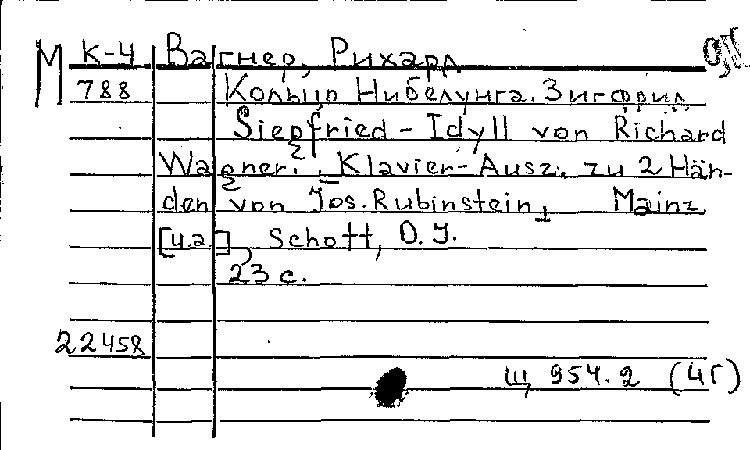 М К-4 Вагнер, Рихард
788 Кольцо Нибелунга. Зигфрид
Siegfried - Idyll von Richard
Wagner. Klavier-Ausz. zu 2 Hän-
den von Jos. Rubinstein, Mainz
[u.a.], Schott, O.J.
23 с.
22458
Щ 954.2 (4Г)